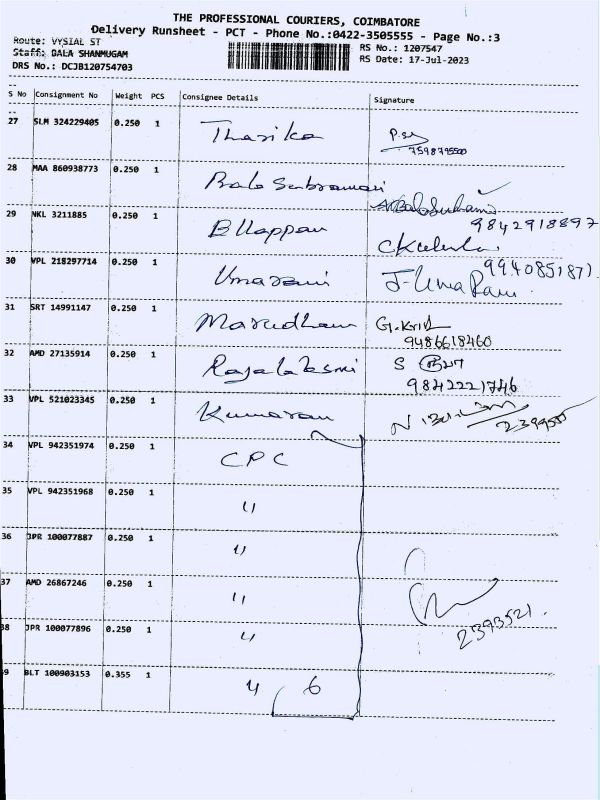 THE PROFESSIONAL COURIERS, COIMBATORE
Delivery Runsheet - PCT - Phone No.:0422-3505555 - Page No.:3
Route: VYSIAL ST
RS No.: 1207547
Staff: BALA SHANMUGAM
RS Date: 17-Jul-2023
DRS No.: DCJB120754703
S No Consignment No Weight PCS Consignee Details Signature
27 SLM 324229405 0.250 1 Tharika
28 MAA 860938773 0.250 1 Bala Subramani
9842918897
29 NKL 3211885 0.250 1 Ellappan
9940851871
30 VPL 218297714 0.250 1 Umarani J-Uma Rani
31 SRT 14991147 0.250 1 Marudham
9486618460
32 AMD 27135914 0.250 1 Rajalaksmi S
9842221746
33 VPL 521023345 0.250 1 Kumaran N
34 VPL 942351974 0.250 1 CPC
35 VPL 942351968 0.250 1 "
36 JPR 100077887 0.250 1 "
37 AMD 26867246 0.250 1 "
38 JPR 100077896 0.250 1 "
2393521.
39 BLT 100903153 0.355 1 " 6